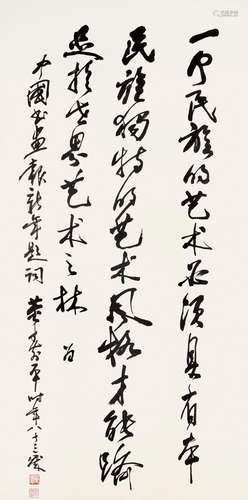 一个民族的艺术必须具有本
民族獨特的艺术风格才能跻
足於世界艺术之林
中國书画報新年题词 董寿平时年八十三歲